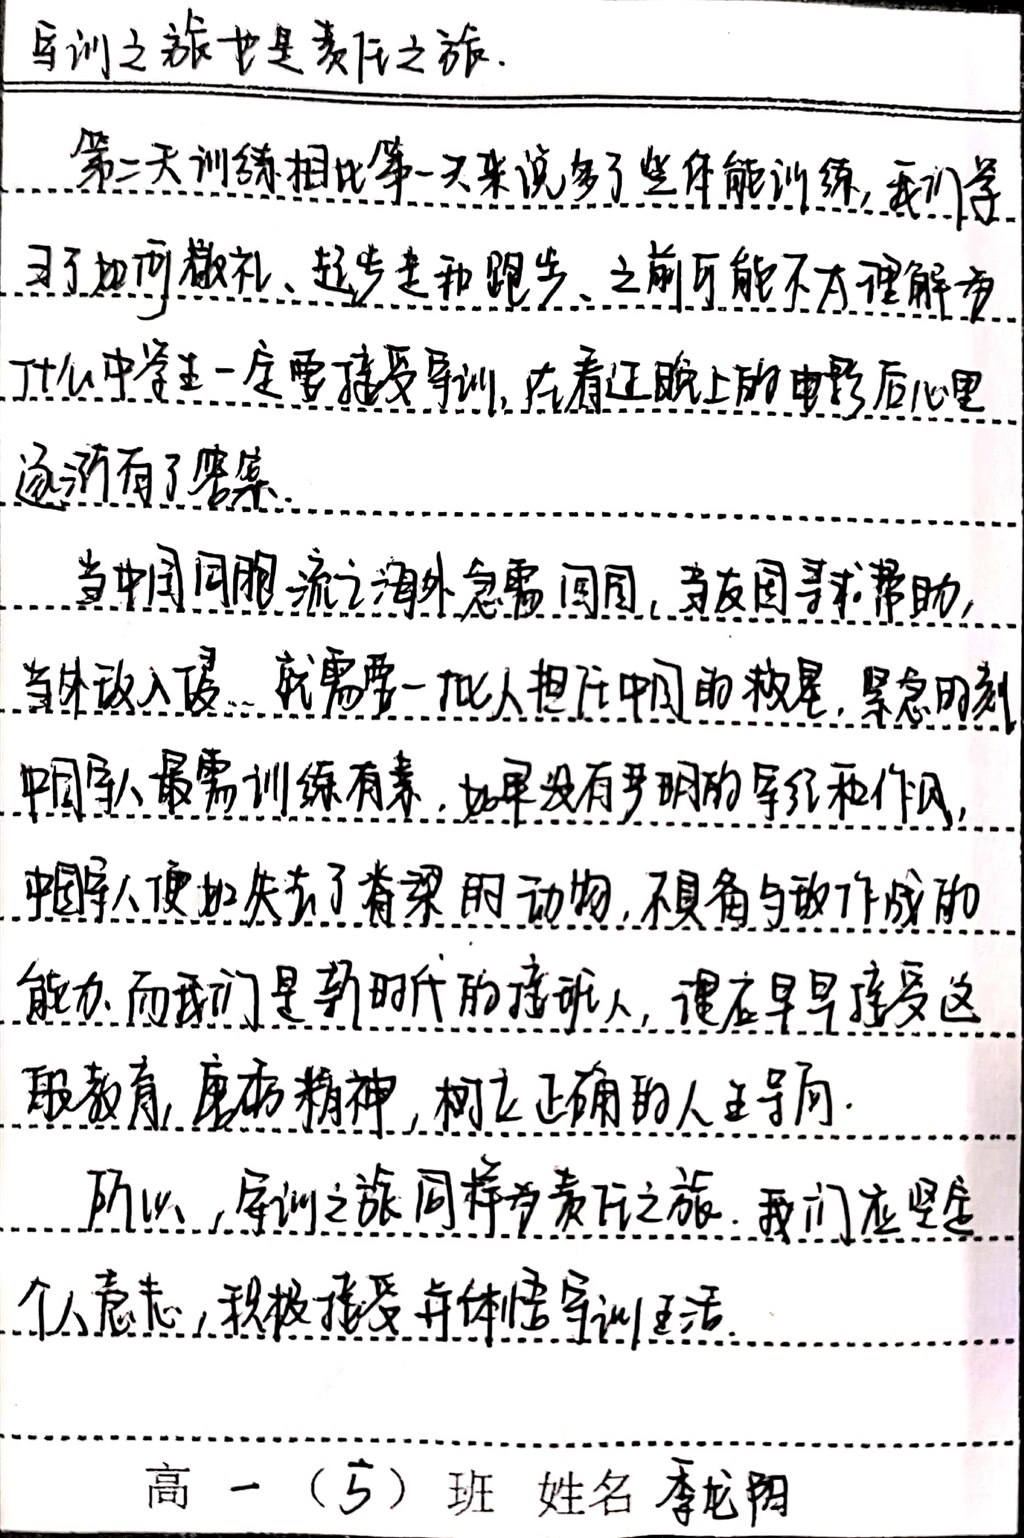 军训之旅也是责任之旅.
第二天训练相比第一天来说多了些体能训练,我们学
习了如何敬礼、起步走和跑步、之前可能不太理解为
什么中学生一定要接受军训,在看过晚上的电影后心里
逐渐有了答案.
当中国同胞流亡海外急需回国,当友国寻求帮助,
当外敌入侵…就需要一批人担任中国的救星.紧急时刻
中国军人最需训练有素.如果没有严明的军纪和作风,
中国军人便如失去了脊梁的动物,不具备与敌作战的
能力.而我们是新时代的接班人,理应早早接受这
股教育,磨砺精神,树立正确的人生导向.
所以,军训之旅同样为责任之旅.我们应坚定
个人意志,积极接受并体悟军训生活.
高一(5)班 姓名 李龙阳